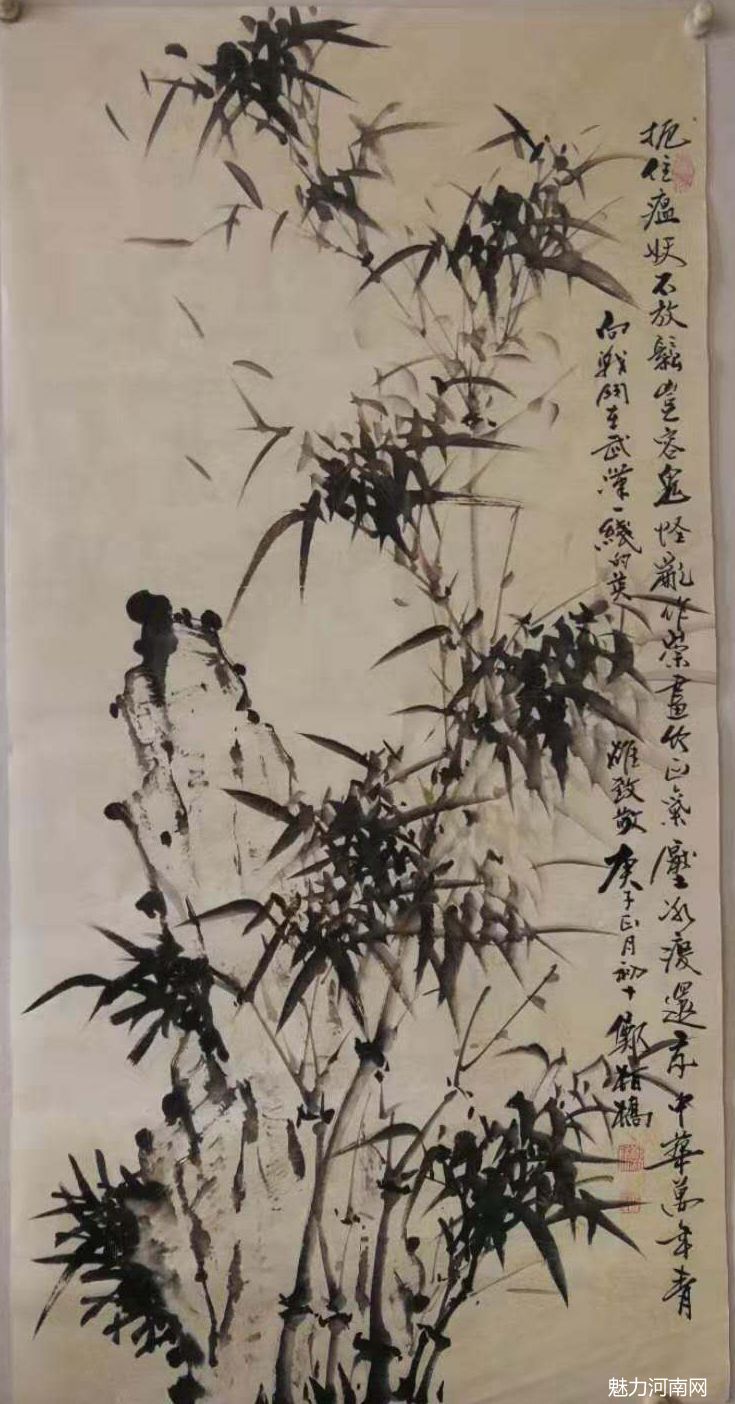 扼住瘟妖不放鬆豈容鬼怪亂作祟畫竹正氣壓疫還中華萬年青
向戰鬥在武漢一綫的英
雄致敬 庚子正月初十 鄭橋
魅力河南网